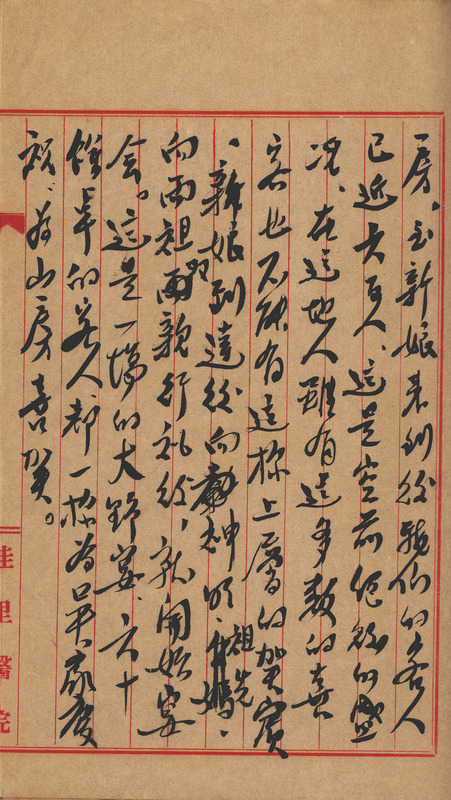 房、至新娘來到後親自的客人
已近六百人、這是空前絕後的盛
況、在這地人雖有這多數的喜
客也不能有這樣上層的賀賓
、新娘到達後向神明、祖先、
向兩祖兩親行礼後、就開始宴
会。這是一場的大野宴、六十
餘卓的客人都一樣為呈家慶
祝、為山房喜賀。
佳里醫院